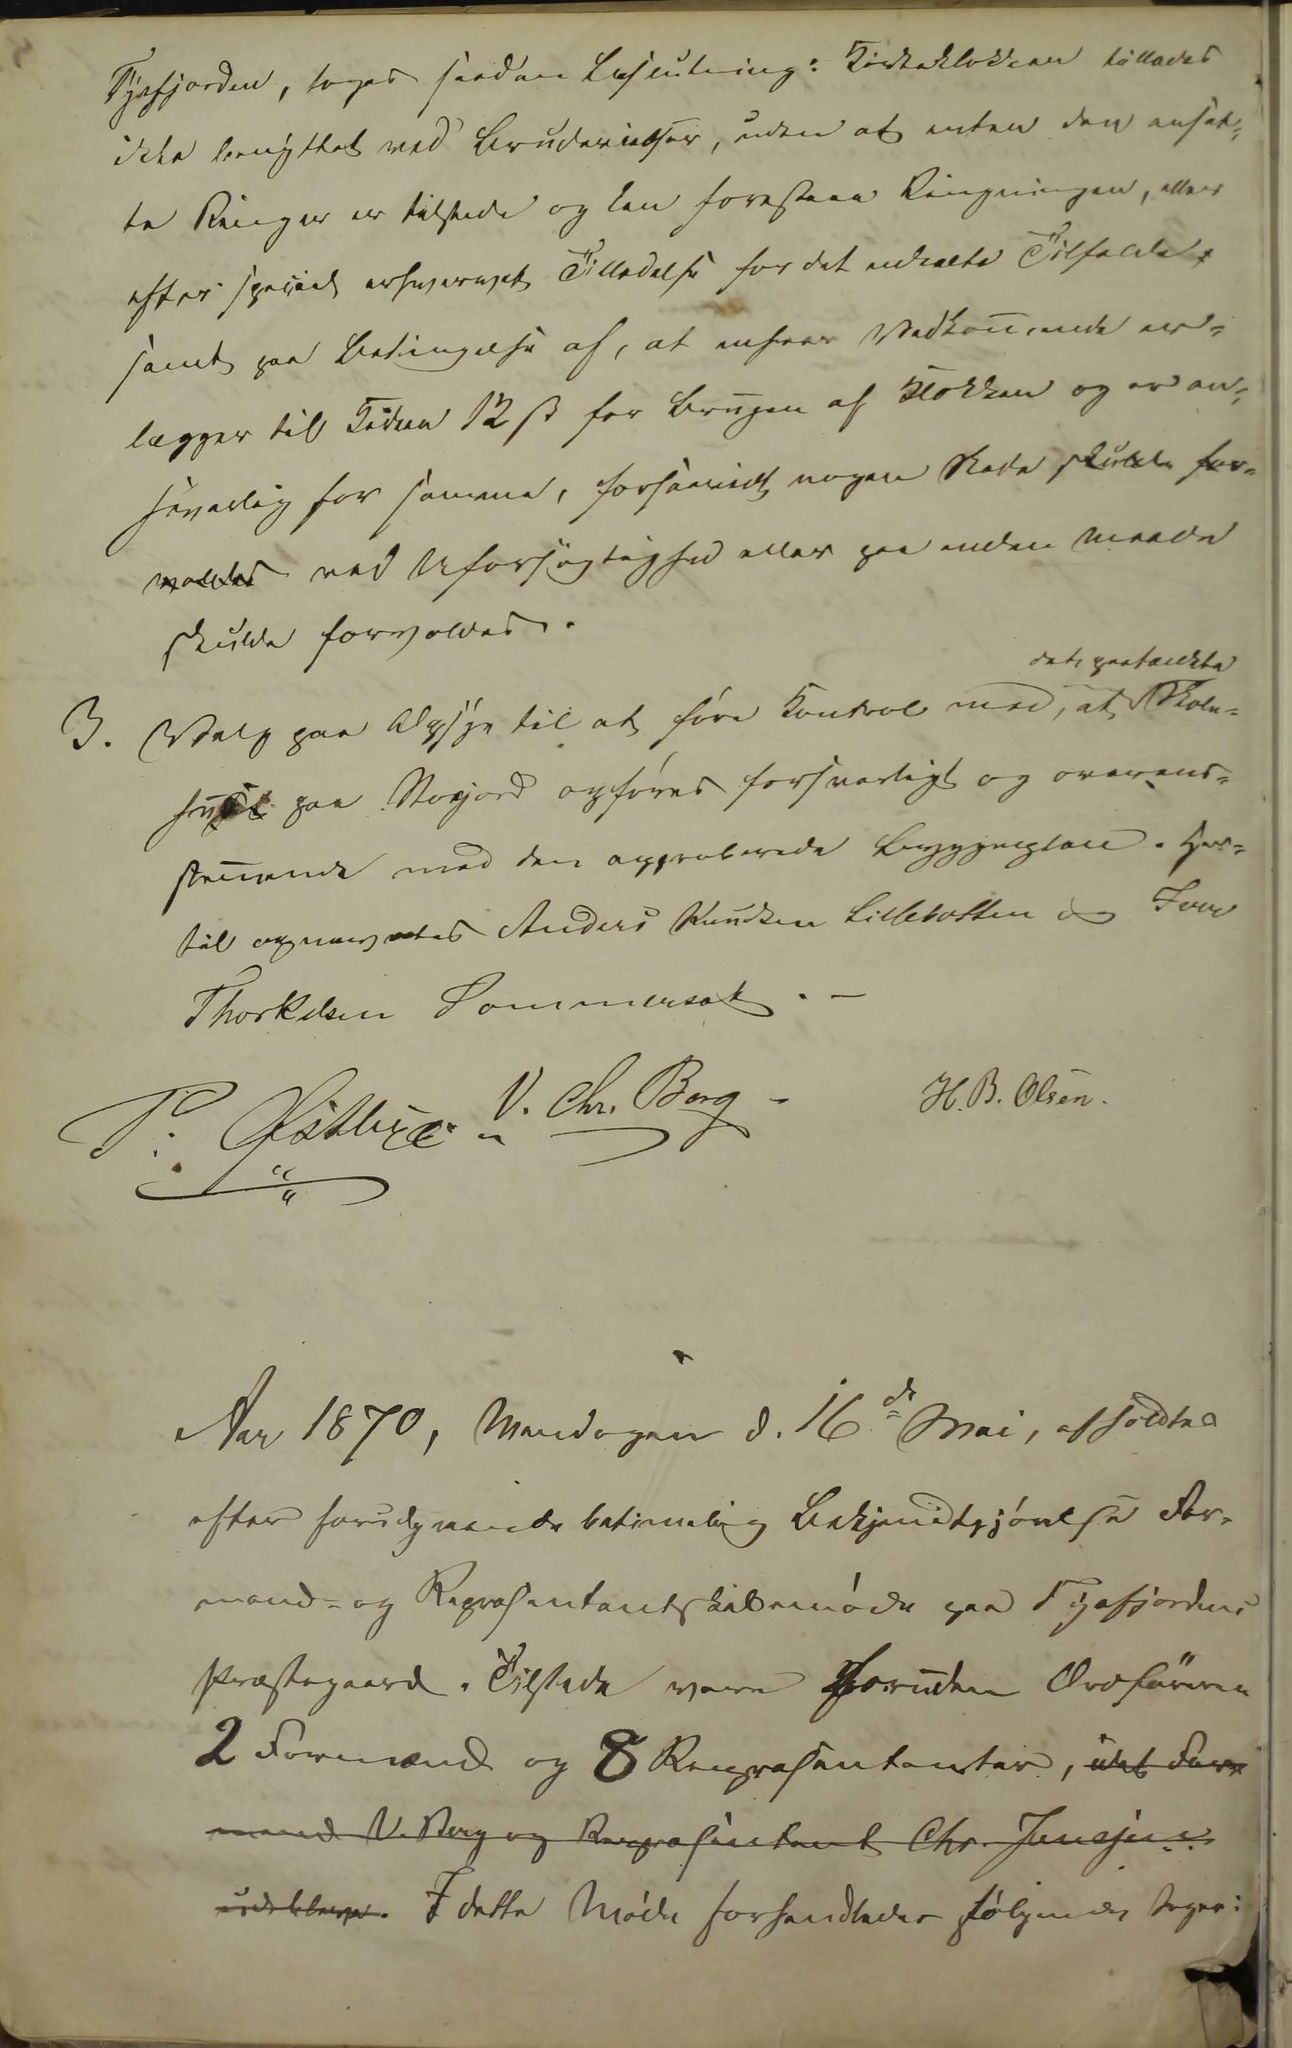 Tysfjorden, toges saadan Beslutning: Kirkeklokken tillades
ikke benyttet ved Bruderielser, uden at enten den ansat-
te Ringer er tilstede og kan forestaae Ringningen, eller
efter speciel erhvervet Tilladelse for det enkelte Tilfælde,
samt paa Betingelse af, at enhver Vedkommende er-
lægger til Kirken 12 ß for Brugen af Klokken og er an-
svarlig for samme, forsaavidt nogen Skade skulde for-
voldes ved Uforsigtighed eller paa anden Maade
skulde forvoldes.
det paatænkte
3. Valg paa Opsyn til at føre Kontrol med, at Skole-
huset paa Storjord opføres forsvarligt og overens-
stemmende med den approberede Byggeplan. Her-
til opnævntes Anders Knudsen Lillebotten og Iver
Thorkelsen Sommerset. -
P. Østbye V. Chr. Borg - H. B. Olsen.
Aar 1870, Mandagen d. 16de Mai, afholdtes
efter forudgaaende betimelig Bekjendtgjørelse For-
mand- og Repræsentantskabsmøde paa Tysfjordens
Præstegaard. Tilstede vare foruden Ordføreren
2 Formænd og 8 Repræsentanter, idet For-
mand V. Borg og Repræsentant Chr. Jensen
udebleve. I dette Møde forhandledes følgende Sager: